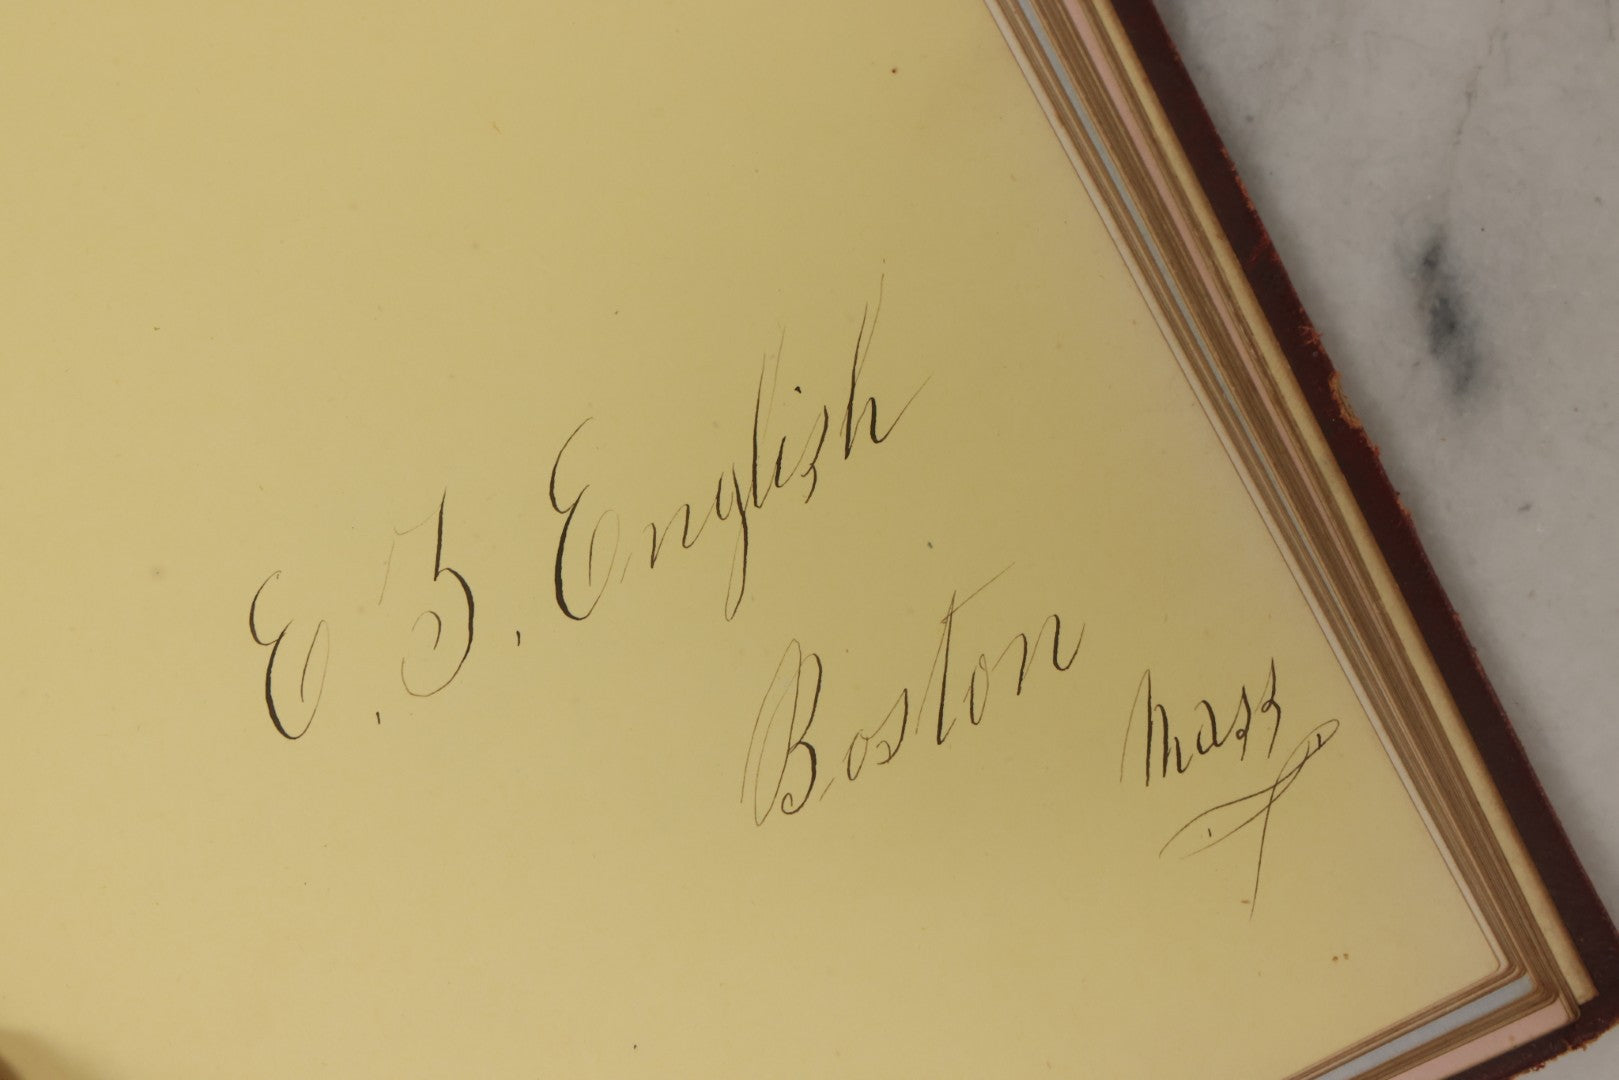 E. T. English
Boston
Mass